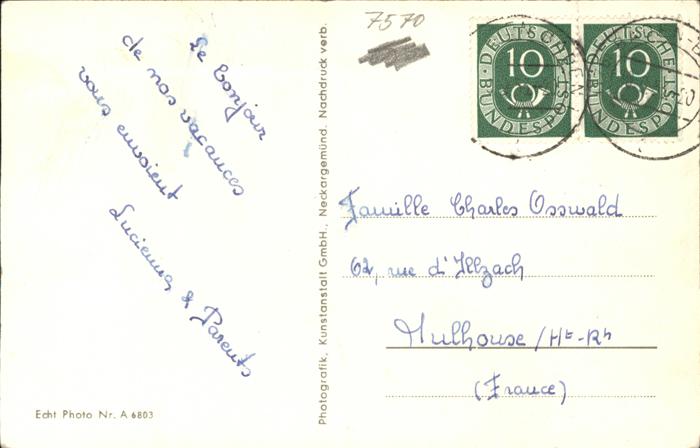 7570
Le Bonjour
de nos vacances
vous envoient
Lucienne & Parents
Echt Photo Nr. A 6803
Photografik, Kunstanstalt GmbH., Neckargemünd. Nachdruck verb.
10
DEUTSCHE
BUNDESPOST
10
DEUTSCHE
BUNDESPOST
Famille Charles Osswald
62, rue d'Illzach
Mulhouse /Ht-Rh
(France)